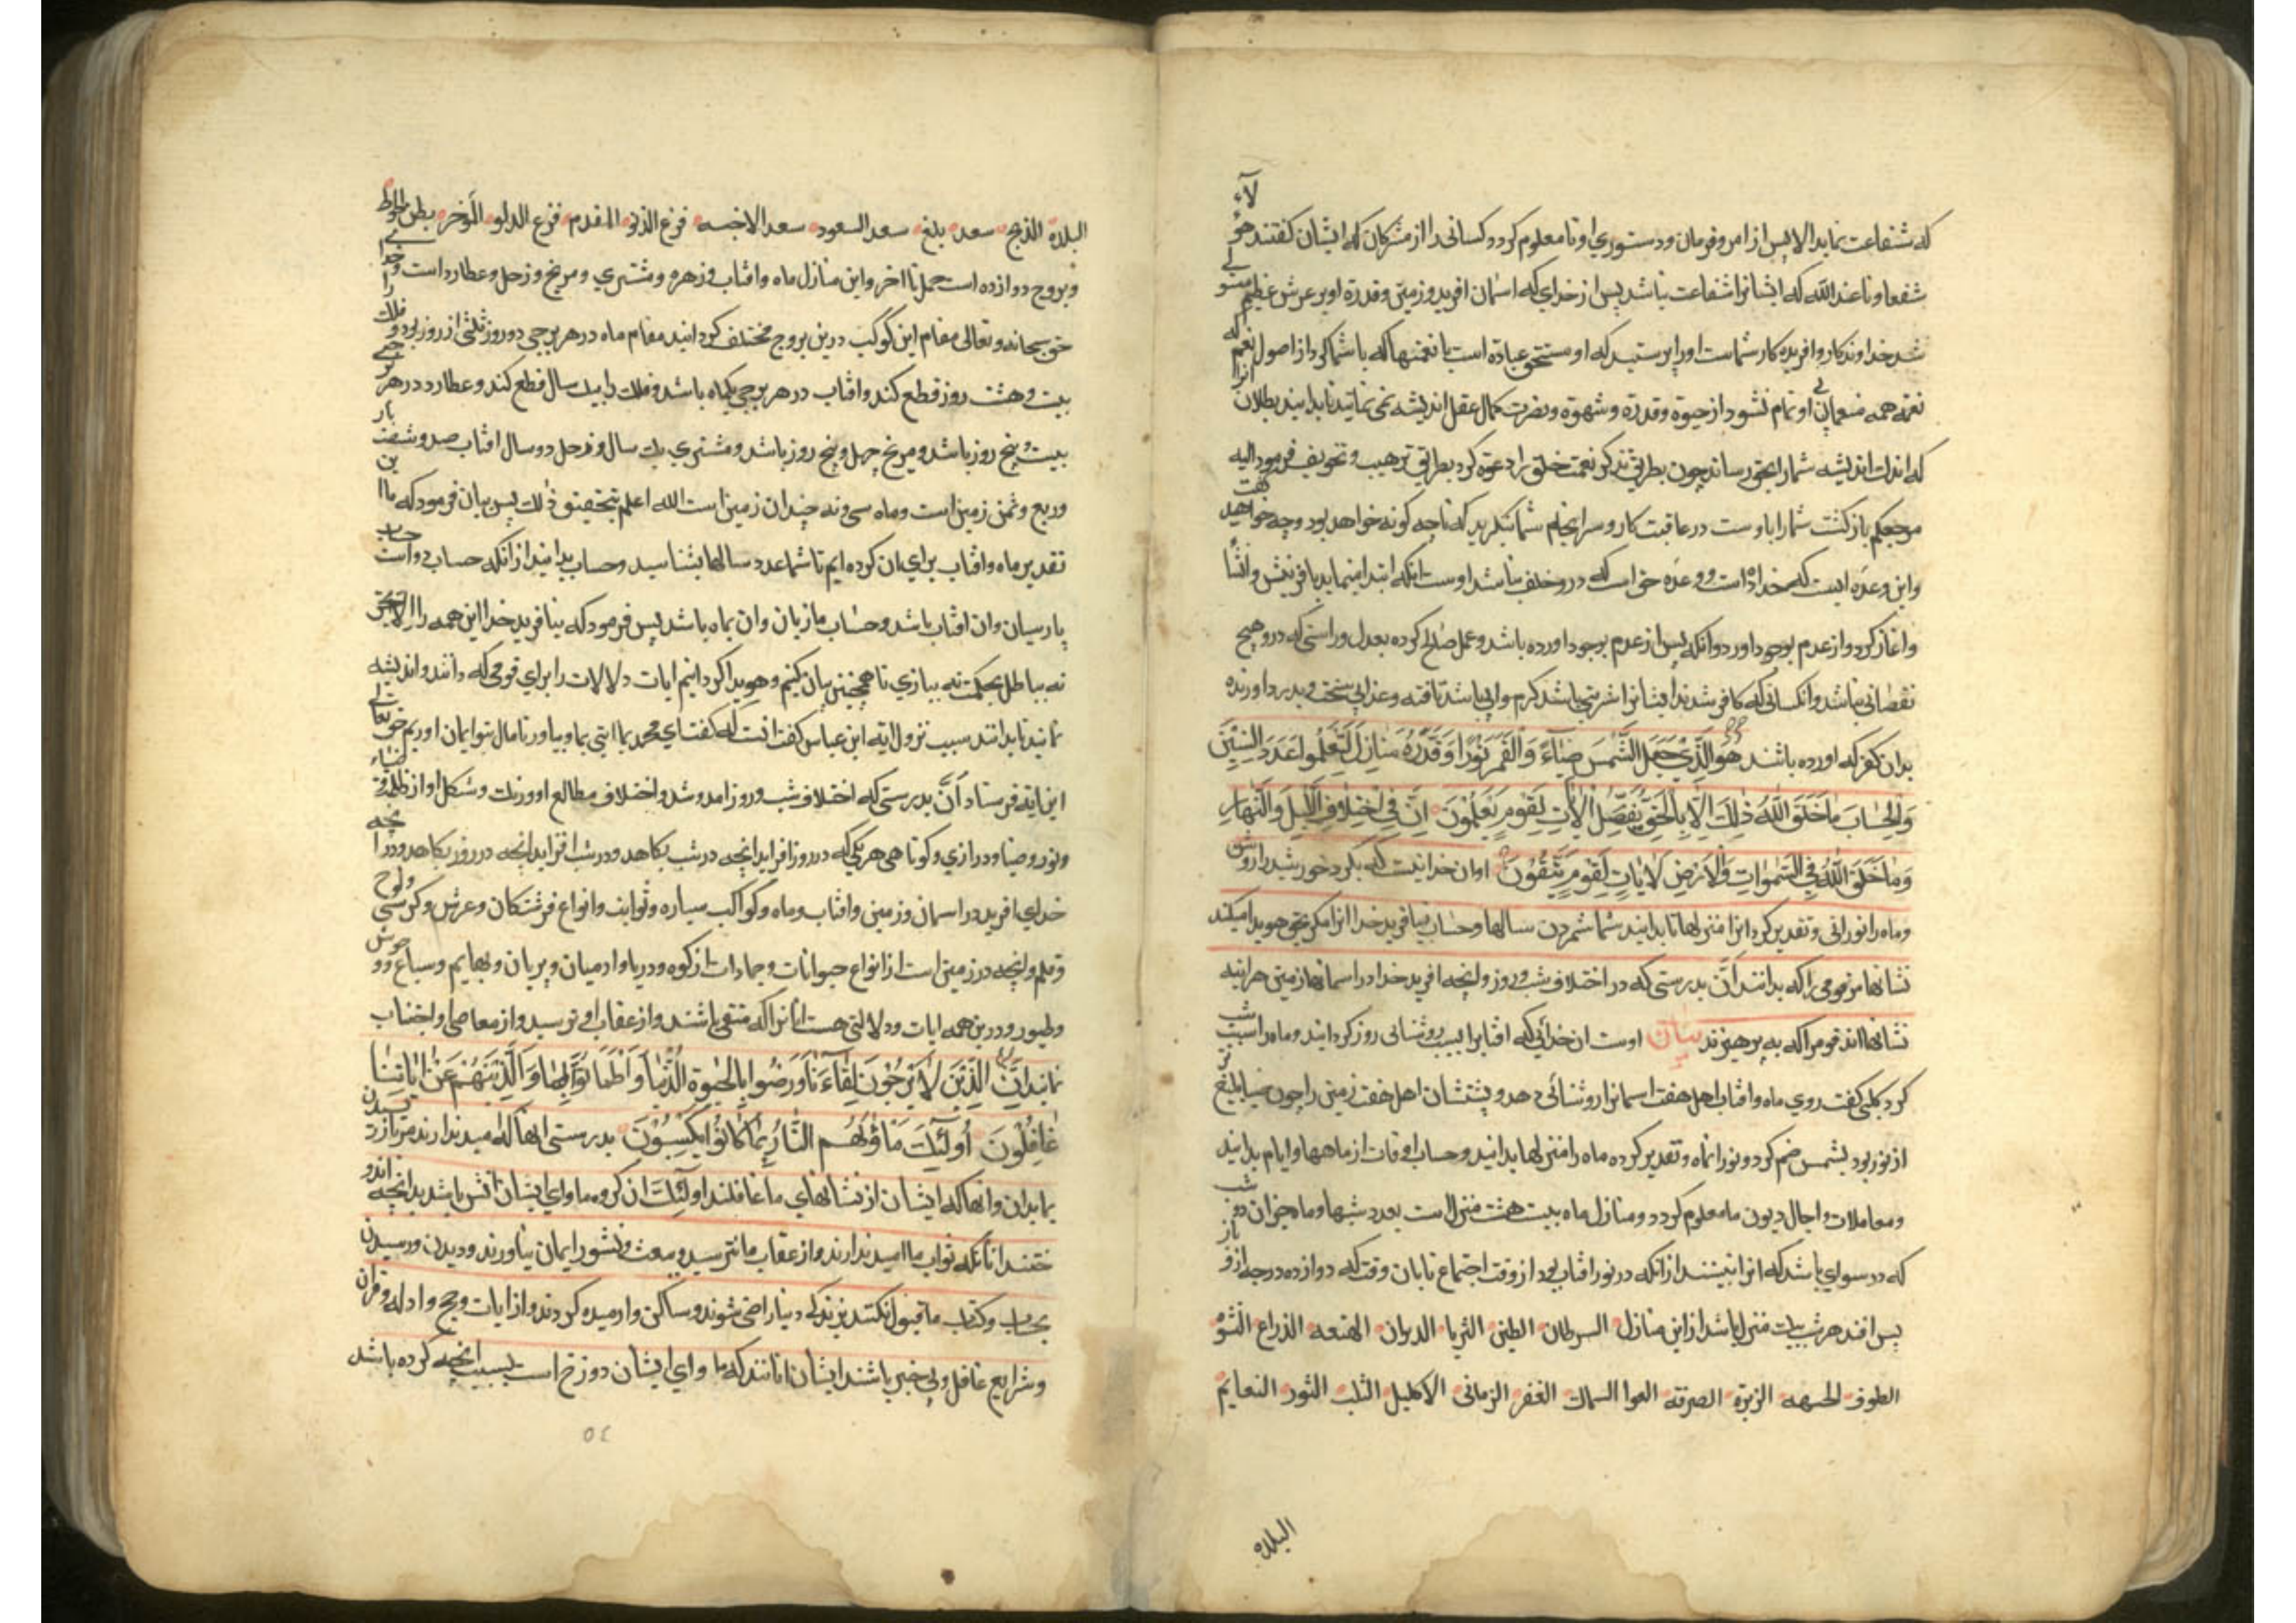 که شفاعت نماید الا پس از امر و فرمان و دستوری او تا معلوم کردد کسانی را از مشرکان که ایشان کفتند هؤلاء
شفعاونا عند الله که ایشانرا شفاعت نباشد پس از خدای که اسمان افرید و زمین و قدرة او بر عرش عظیم مستولی
شد خداوند کار و افریده کار شماست اورا پرستید که او مستحق عبادة است با نعمتها که با شما کرد از اصول نعم که انرا
نعمة همه منعمان بی او تمام نشود از حیوة و قدرة و شهوة و نصرت کمال عقل اندیشه نمی نمائید تا بدانید بطلان
که اندک اندیشه شمارا بحق رساند چون بطریق تذکر نعمت خلق را دعوة کرد بطریق ترهیب و تخویف فرمود الیه
مرجعکم بازکشت شمارا باوست در عاقبت کار و سرانجام شما بنکرید که تا چه کونه خواهد بود و چه خواهید کفت
و این وعده ایست که خدا داده است و وعده حق است که درو خلف نباشد اوست انکه ابتدا مینماید بافرینش و انشا
و اغاز کرد و از عدم بوجود اورد و انکه پس از عدم بوجود اورده باشد و عمل صالح کرده بعدل و راستی که درو هیچ
نقصانی نباشد و انکسانی که کافر شدند ایشانرا شربتی باشد کرم و ابی باشد تافته و عذابی سخت و بدرد اورنده
بدان کفر که اورده باشند هُوَ الَّذِي جَعَلَ الشَّمْسَ ضِيَاءً وَالْقَمَرَ نُورًا وَقَدَّرَهُ مَنَازِلَ لِتَعْلَمُوا عَدَدَ السِّنِينَ
وَالْحِسَابَ مَا خَلَقَ اللَّهُ ذَلِكَ إِلَّا بِالْحَقِّ يُفَصِّلُ الْآيَاتِ لِقَوْمٍ يَعْلَمُونَ إِنَّ فِي اخْتِلَافِ اللَّيْلِ وَالنَّهَارِ
وَمَا خَلَقَ اللَّهُ فِي السَّمَوَاتِ وَالْأَرْضِ لَآيَاتٍ لِقَوْمٍ يَتَّقُونَ او ان خدائیست که بکرد خورشید را روشن
و ماه را نورانی و تقدیر کرد انرا منزلها تا بدانید شما شمردن سالها و حساب نیافرید خدا انرا مکر بحق هویدا میکند
نشانها مر قومی را که بدانند اِنَّ بدرستی که در اختلاف شب و روز و انچه افرید خدا در اسمانها و زمین هراینه
نشانها اند قومرا که به پرهیزند بیان اوست ان خدائی که افتابرا بسبب روشنائی روز کردانید و ماه را سبب شب
کرد کلبی کفت روی ماه و افتاب اهل هفت اسمانرا روشنائی دهد و پشتشان اهل هفت زمین را چون
از نور بود بشمس ضم کرد و نورا بماه و تقدیر کرده ماه را منزلها بدانید و حساب اوقات از ماهها و ایام بدانید
و معاملات و اجال دیون ما معلوم کردد و منازل ماه بیست هشت منزلست بعدد شبها و ماه جز ان دو شب
که در سوای باشد که انرا نبینند از انکه در نور افتاب بود از وقت اجتماع تا بان وقت که دوازده درجه ازو باز
پس افتد هر شب بیک منزل باشد از این منازل السرطان البطین الثریا الدبران الهنعه الذراع النثره
الطرف الجبهه الزبرة الصرفه العوا السماک الغفر الزبانی الاکلیل القلب الثور النعایم
البلده
البلده الذبح سعد بلغ سعد السعود سعد الاخبیه فرغ الدلو المقدم فرغ الدلو المؤخر بطن الحوط
و بروج دوازده است حمل تا اخر و این منازل ماه و افتاب و زهره و مشتری و مریخ و زحل و عطارد است
حق سبحانه و تعالی مقام این کوکب درین بروج مختلف کردانید مقام ماه در هر برجی دو روز ثلثی از روز بود و
بیست و هشت روز قطع کند و افتاب در هر برجی یکماه باشد و فلک را بیک سال قطع کند و عطارد در هر
بیست پنج روز باشد و مریخ چهل و پنج روز باشد و مشتری یک سال و زحل دو سال افتاب صد و شصت
و ربع و ثمن زمین است و ماه سی و نه چندان زمین است الله اعلم بتحقیق ذلک پس بیان فرمود که ما این
تقدیر ماه و افتاب برای ان کرده ایم تا شما عدد سالها بشناسید و حساب بدانید از انکه حساب دو است حساب
پارسیان و ان افتاب باشد و حساب ما تازیان و ان بماه باشد پس فرمود که بنافرید خدا این همه را الا بحق
نه بباطل بحکمت نه ببازی تا همچنین بیان کنیم و هویدا کردانیم ایات دلالات را برای قومی که دانند و اندیشه
نمایند تا بدانند سبب نزول ایه ابن عباس کفت انست که کفتند ای محمد بما ایتی بما بیاور تا ما بتو ایمان اوریم حق تعالی
این ایة فرستاد اِنَّ بدرستی که اختلاف شب و روز امد و شد و اختلاف مطالع او و رنک و شکل او از ظلمة
و نور و ضیا و درازی و کوتاهی هر یکی که در روز افزاید انچه در شب بکاهد و در شب افزاید انچه در روز بکاهد و در انچه
خدای افرید در اسمان و زمین و افتاب و ماه و کواکب سیاره و ثوابت و انواع فرشتکان و عرش و کرسی و لوح
و قلم و انچه در زمین است از انواع حیوانات و جمادات از کوه و دریا و ادمیان و پریان و بهایم و سباع و وحوش
و طیور و درین همه ایات و دلالتی هست انانرا که متقی باشند و از عقاب او ترسید و از معاصی او اجتناب
نمایند اِنَّ الَّذِينَ لَا يَرْجُونَ لِقَاءَنَا وَرَضُوا بِالْحَيَوةِ الدُّنْيَا وَاطْمَأَنُّوا بِهَا وَالَّذِينَ هُمْ عَنْ آيَاتِنَا
غَافِلُونَ أُولَئِكَ مَأْوَاهُمُ النَّارُ بِمَا كَانُوا يَكْسِبُونَ بدرستی انها که امید ندارند مر باز رسیدن
بما بدان و انها که ایشان از نشانهای ما غافلند اولئک ان کروه ماوای ایشان اتش باشد بدانچه اندو
ختند انانکه ثواب ما امید ندارند و از عقاب ما نترسید و بعث و نشور ایمان نیاورند و دیدن و رسیدن
بحساب و کتاب ما قبول نکنند بزندکی دنیا راضی شوند و ساکن و ارمیده کردند و از ایات و حج و ادله و قران
و شرایع غافل و بی خبر باشند ایشان انانند که ماوای ایشان دوزخ است بسبب انچه کرده باشد